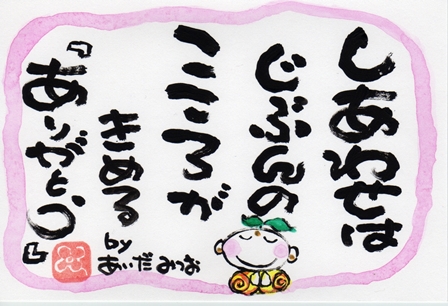 しあわせは
じぶんの
こころが
きめる
by
あいだみつお
『ありがとう』